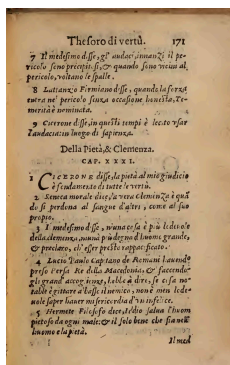 Thesoro di vertù. 171
7 Il medesimo disse, gl'audaci, innanzi il pe-
ricolo sono precipitosi, & quando sono vicini al
pericolo, voltano le spalle.
8 Lattanzio Firmiano disse, quando la forza
entra ne' pericoli senza occasione honesta, Te-
merità è nominata.
9 Cicerone disse, in questi tempi è lecito vsar
l'audacia in luogo di sapienza.
Della Pietà, & Clemenza.
CAP. XXXI.
1 CICERONE disse, la pietà al mio giudicio
è fondamento di tutte le vertù.
2 Seneca morale dice, la vera Clemẽza è quã
do si perdona al sangue d'altri, come al suo
proprio.
3 Il medesimo disse, niuna cosa è più lodeuole
della clemenza, niuna più degna d'huomo grande,
& preclaro, ch'esser presto rappacificato.
4 Lucio Paulo Capitano de Romani hauendo
preso Re della Macedonia, & facendo-
gli grand' accoglienza, hebbe à dire, se cosa no-
table è gittare a basso il nemico, non è men lode-
uole saper hauer misericordia d'un infelice.
5 Hermete Filosofo dice, Iddio salua l'huom
pietoso da ogni male: & il solo bene che sia nell'
huomo è la pietà.
Il med